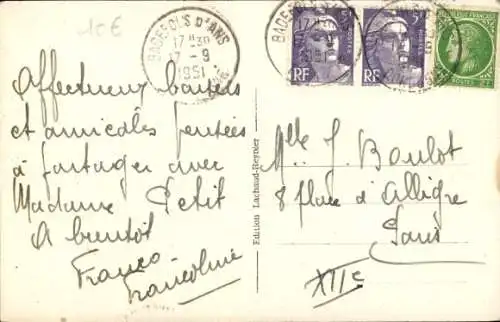 10€
BADEFOLS D'ANS
17H30
17-9
1951
RF
RF
Affectueux baisers
et amicales pensées
à partager avec
Madame Petit
A bientôt
Francoline
Edition Lachaud-Reynier
Mlle J. Boulot
8 place d'Alligre
Paris
XIIe